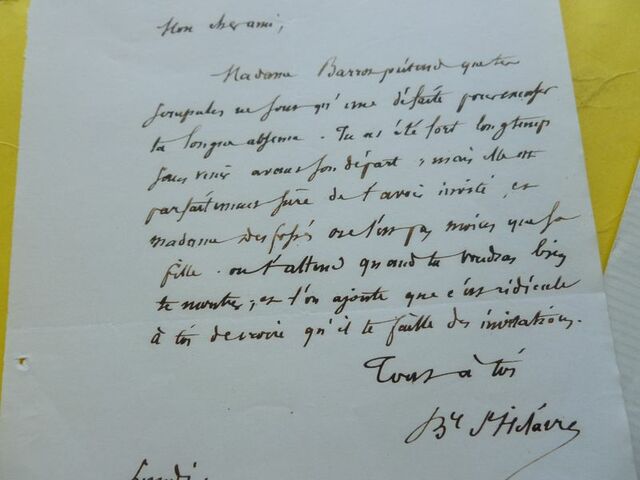 Mon cher ami,
Madame Barros prétend que tes
scrupules ne sont qu'une défaite pour excuser
ta longue absence. Tu as été fort longtemps
sans venir avant son départ ; mais elle est
parfaitement sûre de t'avoir invité, et
madame Desfossés ne l'est pas moins que sa
fille. on t'attend quand tu voudras bien
te montrer ; et l'on ajoute que c'est ridicule
à toi de croire qu'il te faille des invitations.
Tout à toi
By St Hilaire